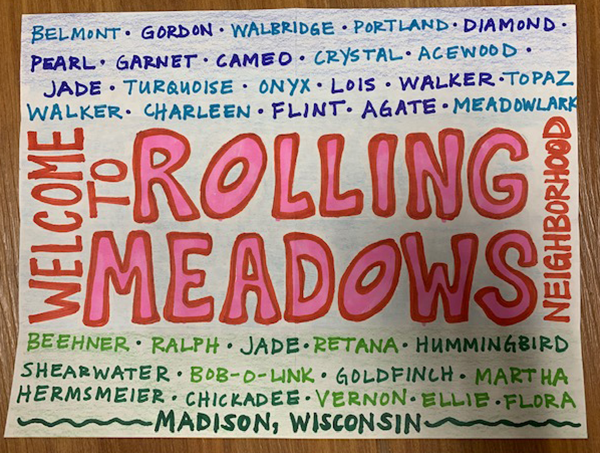 BELMONT · GORDON · WALBRIDGE · PORTLAND · DIAMOND ·
PEARL · GARNET · CAMEO · CRYSTAL · ACEWOOD ·
JADE · TURQUOISE · ONYX · LOIS · WALKER · TOPAZ
WALKER · CHARLEEN · FLINT · AGATE · MEADOWLARK
WELCOME
TO
ROLLING
MEADOWS
NEIGHBORHOOD
BEEHNER · RALPH · JADE · RETANA · HUMMINGBIRD
SHEARWATER · BOB-O-LINK · GOLDFINCH · MARTHA
HERMSMEIER · CHICKADEE · VERNON · ELLIE · FLORA
MADISON, WISCONSIN